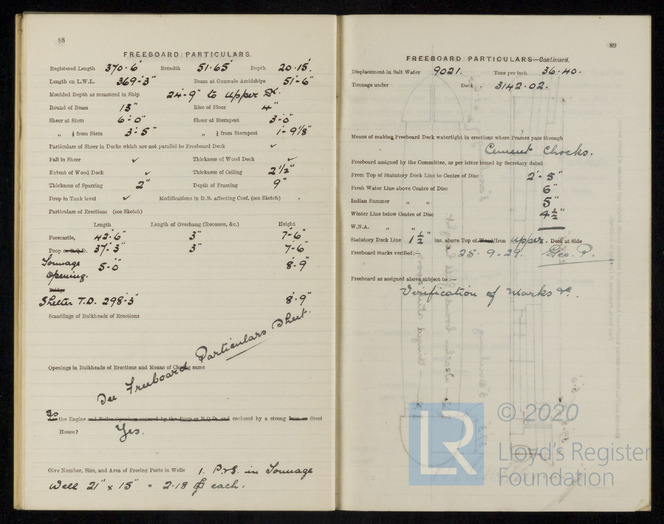 88
FREEBOARD PARTICULARS.
Registered Length 370·6' Breadth 51·65' Depth 20·15'
Length on L.W.L. 369'-3" Beam at Gunwale Amidships 51'-6"
Moulded Depth as measured in Ship 24'-9" to Upper Dk.
Round of Beam 13" Rise of Floor 4"
Sheer at Stem 6'-0" Sheer at Sternpost 3'-0"
" ⅛ from Stem 3'-5" " ⅛ from Sternpost 1'-9⅛"
Particulars of Sheer in Decks which are not parallel to Freeboard Deck ✓
Fall in Sheer ✓ Thickness of Wood Deck ✓
Extent of Wood Deck ✓ Thickness of Ceiling 2½"
Thickness of Sparring 2" Depth of Framing 9"
Drop in Tank level ✓ Modifications in D.B. affecting Coef. (see Sketch)
Particulars of Erections (see Sketch)
Length. Length of Overhang (Recesses, &c.) Height
Forecastle, 43'-6" 3" 7'-6"
Poop 37'-3" 3" 7'-6"
Tonnage Opening. 5'-0" 8'-9"
Bridge
Shelter T.D. 298'-3" 8'-9"
Scantlings of Bulkheads of Erections
Openings in Bulkheads of Erections and Means of Closing same
See Freeboard Particulars Sheet.
Is the Engine and Boiler Openings covered by the Poop or R.Q.D. and enclosed by a strong Iron or Steel
House? Yes.
Give Number, Size, and Area of Freeing Ports in Wells 1. P.&S. in Tonnage
Well 21" x 15" = 2·18 each.
89
FREEBOARD PARTICULARS—Continued.
Displacement in Salt Water 9021. Tons per inch 36·40.
Tonnage under Deck 3142·02.
Means of making Freeboard Deck watertight in erections where Frames pass through
Cement Chocks.
Freeboard assigned by the Committee, as per letter issued by Secretary dated
From Top of Statutory Deck Line to Centre of Disc 2'-5"
Fresh Water Line above Centre of Disc 6"
Indian Summer " " 5"
Winter Line below Centre of Disc 4½"
W.N.A. " "
Statutory Deck Line 1½" ins. above Top of Wood/Iron Upper Deck at Side
Freeboard marks verified:— 25·9·29. Geo. P.
Freeboard as assigned above subject to:—
Verification of Marks &c.
LR
© 2020
Lloyd's Register
Foundation